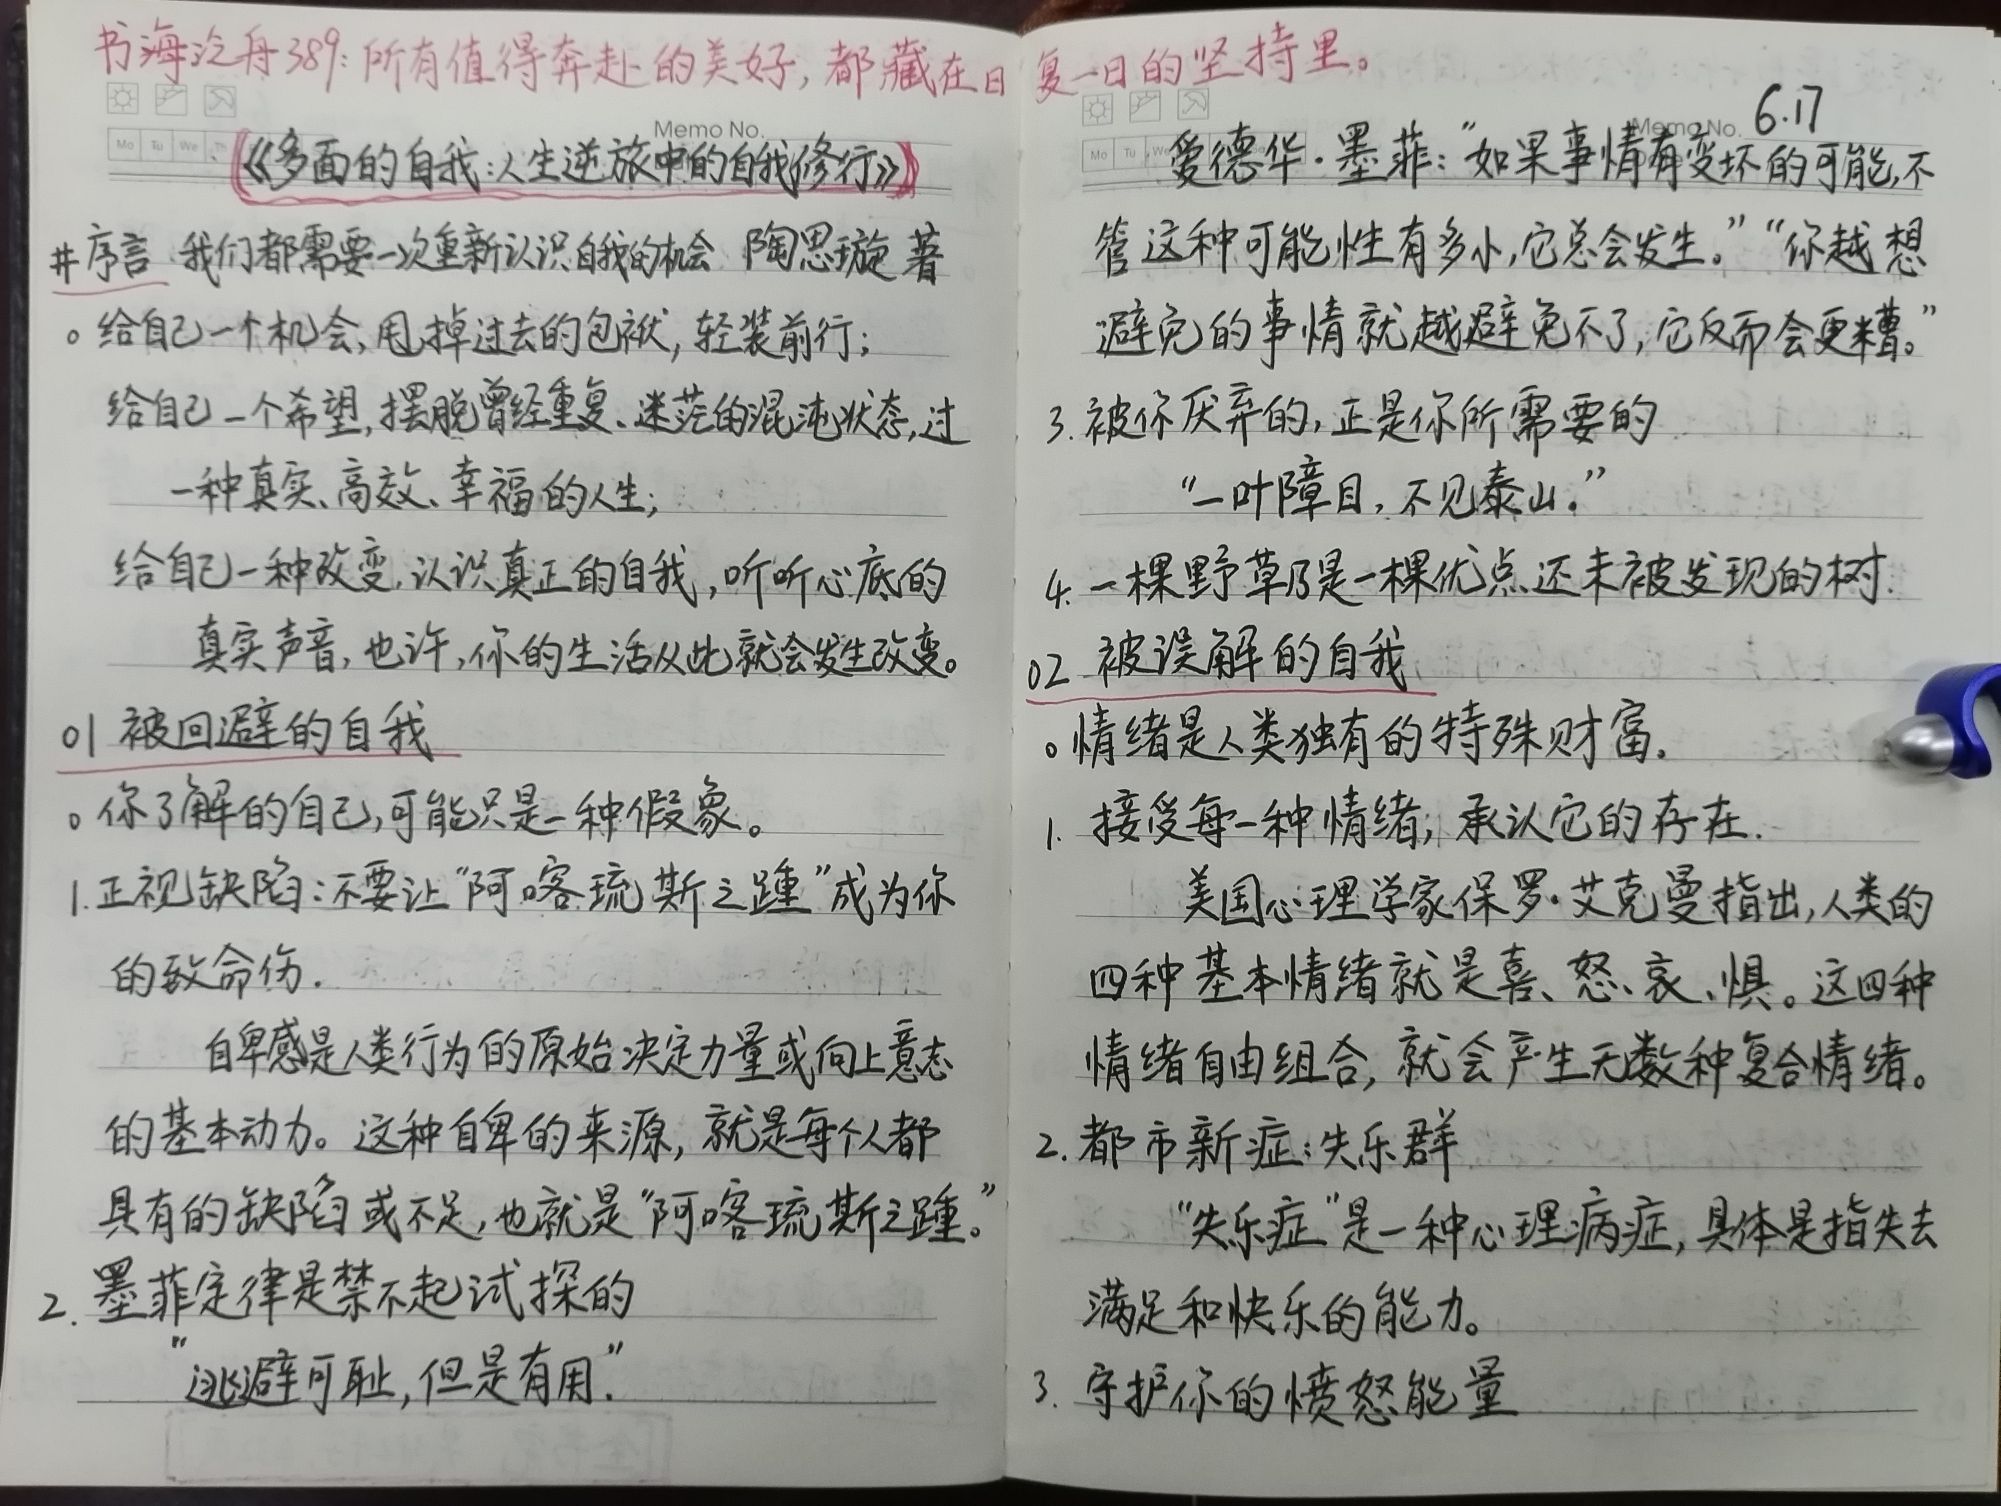 书海泛舟389：所有值得奔赴的美好，都藏在日复一日的坚持里。
Memo No.
Mo Tu We Th
《多面的自我：人生逆旅中的自我修行》
#序言 我们都需要一次重新认识自我的机会 陶思璇 著
。给自己一个机会，甩掉过去的包袱，轻装前行；
给自己一个希望，摆脱曾经重复、迷茫的混沌状态，过
一种真实、高效、幸福的人生；
给自己一种改变，认识真正的自我，听听心底的
真实声音，也许，你的生活从此就会发生改变。
01 被回避的自我
。你了解的自己，可能只是一种假象。
1. 正视缺陷：不要让“阿喀琉斯之踵”成为你
的致命伤．
自卑感是人类行为的原始决定力量或向上意志
的基本动力。这种自卑的来源，就是每个人都
具有的缺陷或不足，也就是“阿喀琉斯之踵。”
2. 墨菲定律是禁不起试探的
“逃避可耻，但是有用．”
6.17
Memo No.
Mo Tu We
爱德华·墨菲：“如果事情有变坏的可能，不
管这种可能性有多小，它总会发生。”“你越想
避免的事情就越避免不了，它反而会更糟。”
3. 被你厌弃的，正是你所需要的
“一叶障目，不见泰山．”
4. 一棵野草乃是一棵优点还未被发现的树．
02 被误解的自我
。情绪是人类独有的特殊财富．
1. 接受每一种情绪，承认它的存在．
美国心理学家保罗·艾克曼指出，人类的
四种基本情绪就是喜、怒、哀、惧。这四种
情绪自由组合，就会产生无数种复合情绪。
2. 都市新症：失乐群
“失乐症”是一种心理病症，具体是指失去
满足和快乐的能力。
3. 守护你的愤怒能量